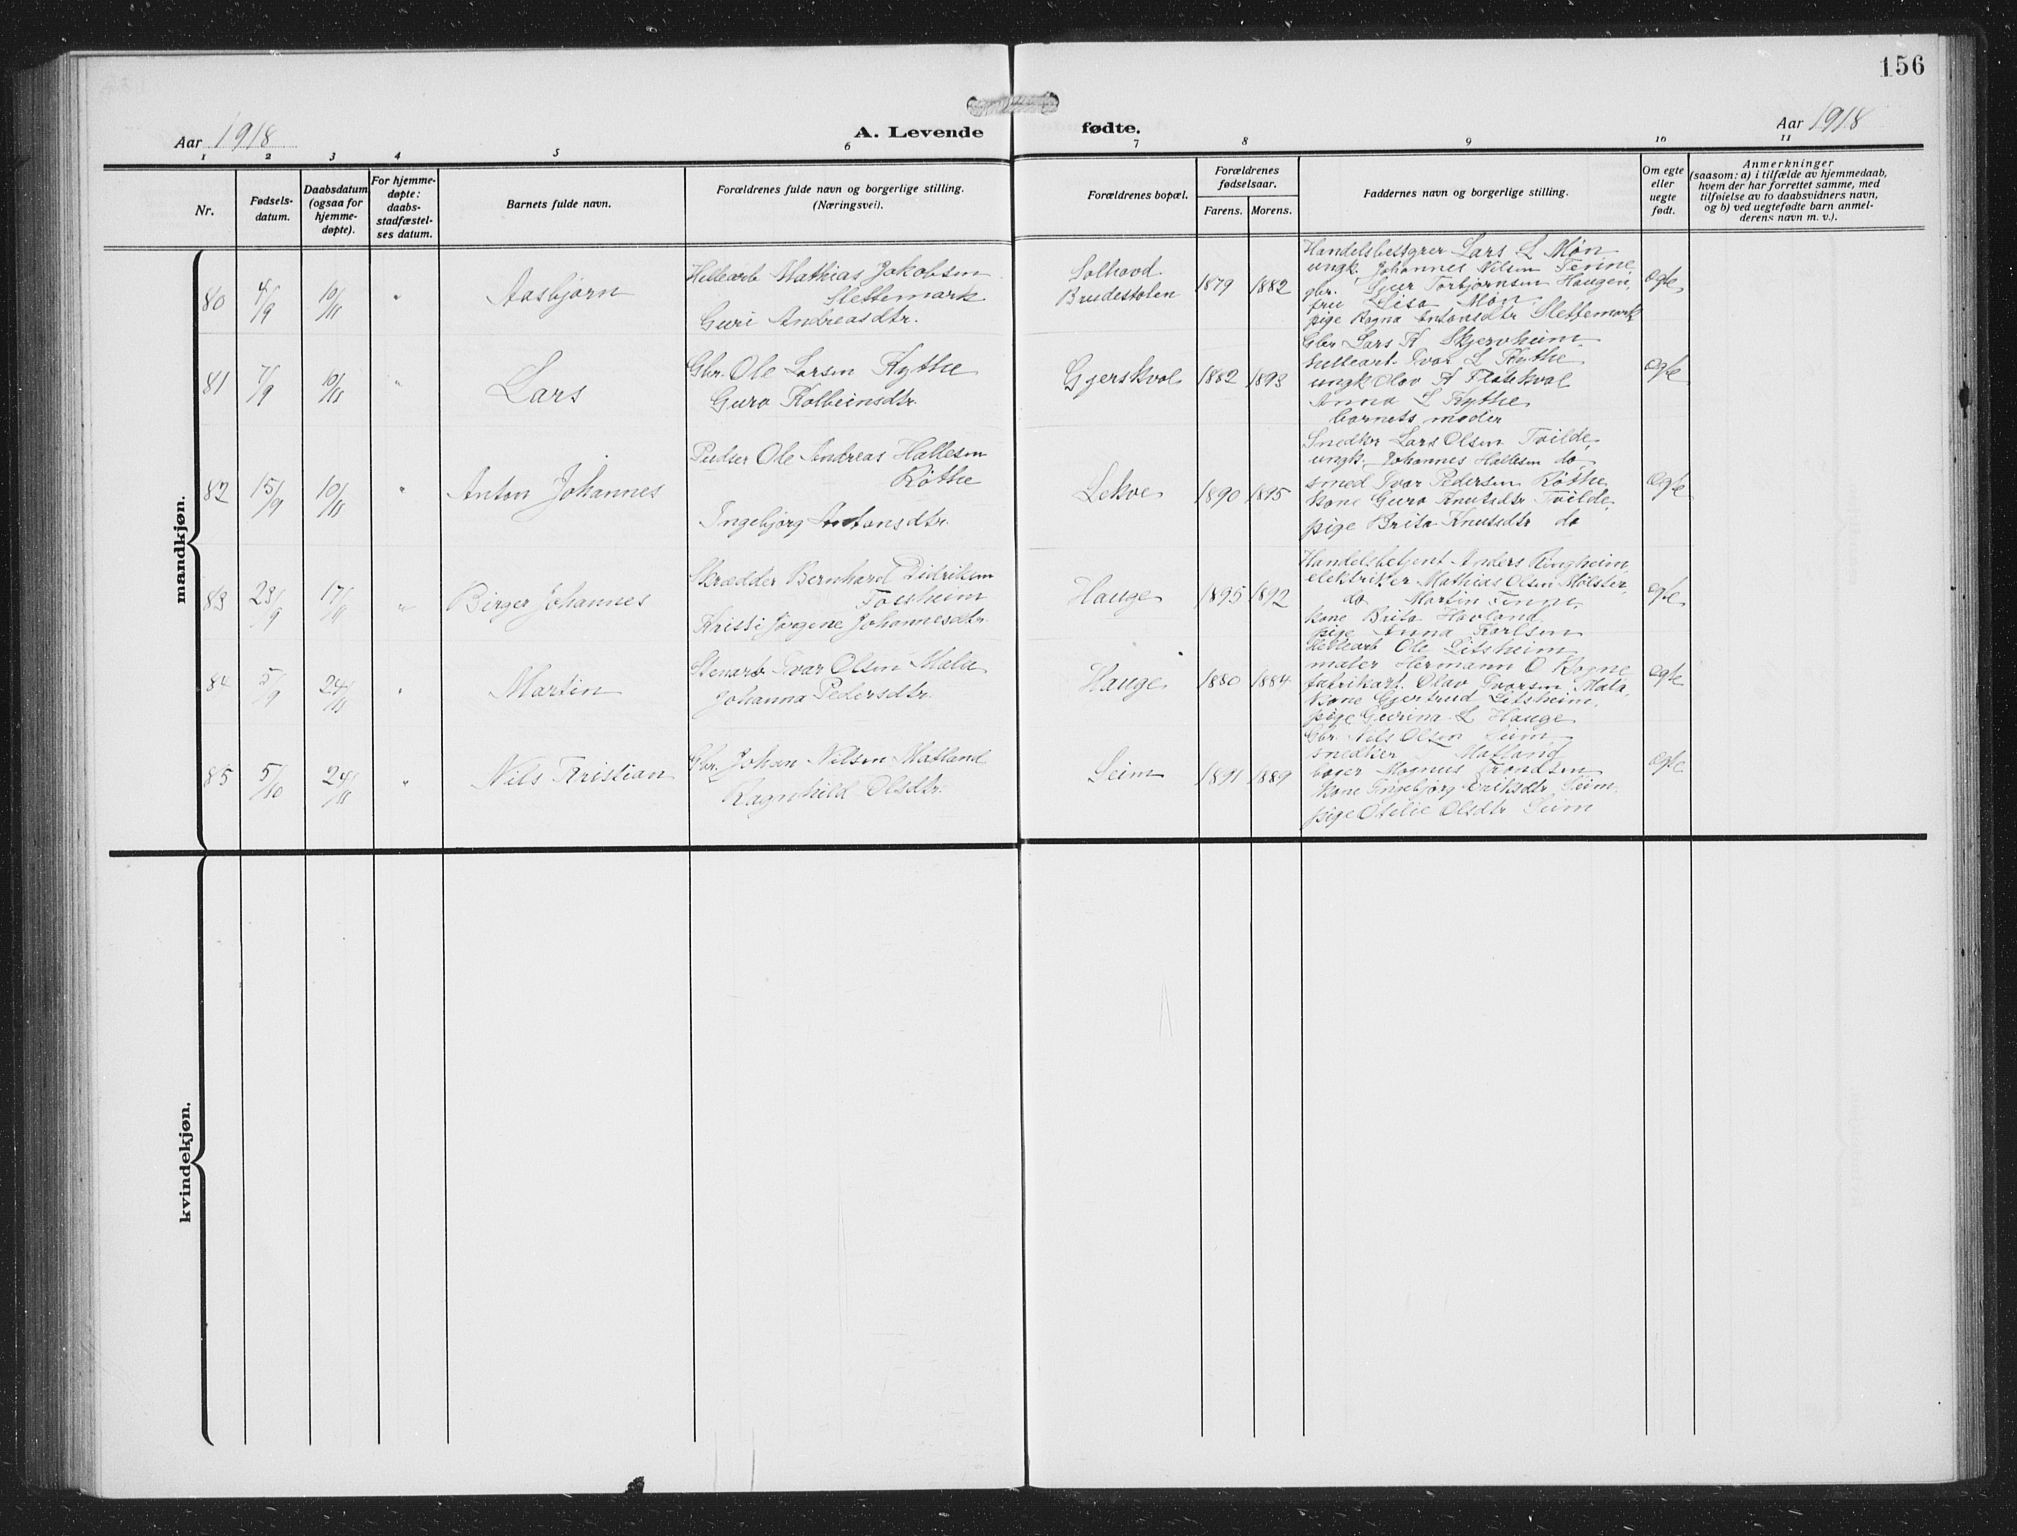 156
Aar 1918
A. Levende fødte.
Aar 1918
1 2 3 4 5 6 7 8 9 10 11
Nr.
Fødsels-
datum.
Daabsdatum
(ogsaa for
hjemme-
døpte).
For hjemme-
døpte:
daabs-
stadfæstel-
ses datum.
Barnets fulde navn.
Forældrenes fulde navn og borgerlige stilling.
(Næringsvei).
Forældrenes bopæl.
Forældrenes
fødselsaar.
Farens. Morens.
Faddernes navn og borgerlige stilling.
Om egte
eller
uegte
født.
Anmerkninger
(saasom: a) i tilfælde av hjemmedaab,
hvem der har forrettet samme, med
tilføielse av to daabsvidners navn,
og b) ved uegtefødte barn anmel-
derens navn m. v.).
mandkjøn.
80
4/9
10/11
"
Aasbjørn
Hellearb Mathias Jakobsen
Slettemark
Guri Andreasdtr.
Solhovd
Brudestolen
1879 1882
Handelsbestyrer Lars L Møn
ungk. Johannes Nilsen Tenne,
gbr. Sjur Torbjørnsen Haugen,
fru Lisa Møn
pige Ragna Antonsdtr Slettemark
egte
81
7/9
10/11
"
Lars
Gbr. Ole Larsen Kythe
Guro Kolbeinsdtr.
Gjerskvol
1882 1893
Gbr Lars K Skjervheim
hellearb. Ivar L Kythe
ungk Olav K Flatekval
Anna L Kythe
barnets moder
egte
82
15/9
10/11
"
Anton Johannes
Pudser Ole Andreas Hallesen
Røthe
Ingebjørg Antonsdtr.
Lekve
1890 1895
Snedker Lars Olsen Tvilde,
ungk. Johannes Hallesen do,
smed Ivar Pedersen Røthe
kone Guro Knutsdtr Tvilde,
pige Brita Knutsdtr do
egte
83
23/9
17/11
"
Birger Johannes
Skrædder Bernhard Didriksen
Tøssheim
Kristi Jørgene Johannesdtr.
Hauge
1895 1892
Handelsbetjent Anders Ringheim,
elektriker Mathias Olsen Mølster,
do Martin Tenne,
kone Brita Hovland
pige Anna Karlsen
egte
84
5/9
24/11
"
Martin
Stenarb Ivar Olsen Mala
Johanna Pedersdtr.
Hauge
1880 1884
Hellearb Ole Litsheim
maler Hermann O Rogne
fabrikarb. Olav Ivarsen Mala
kone Gjertrud Litsheim,
pige Gurina L Hauge
egte
85
5/10
24/11
"
Nils Kristian
Gbr. Johan Nilsen Matland
Ragnhild Olsdtr.
Seim
1891 1889
Gbr. Nils Olsen Seim,
snedker Matland
bager Magnus Trondsen
kone Ingebjørg Eriksdtr Seim,
pige Otelie Olsdtr Seim
egte
kvindekjøn.